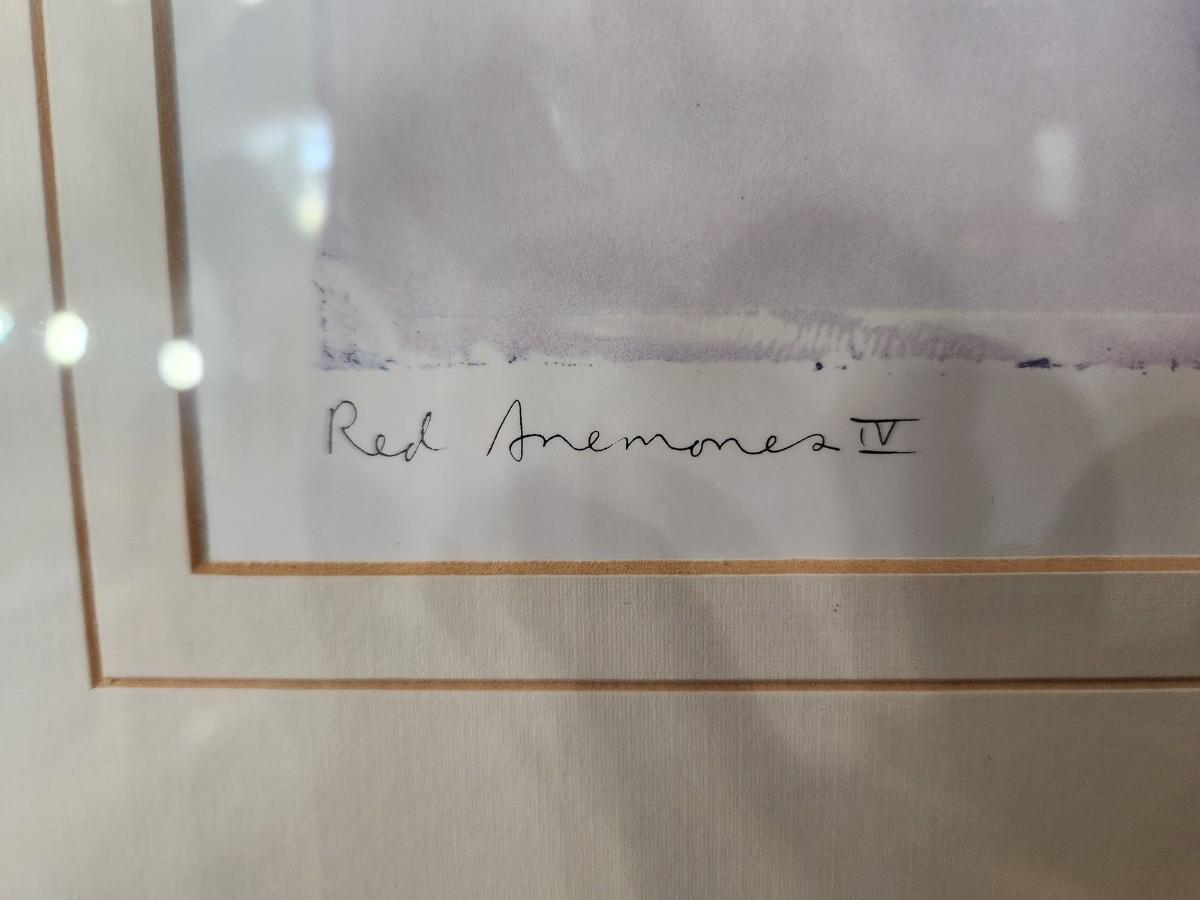 Red Anemones IV